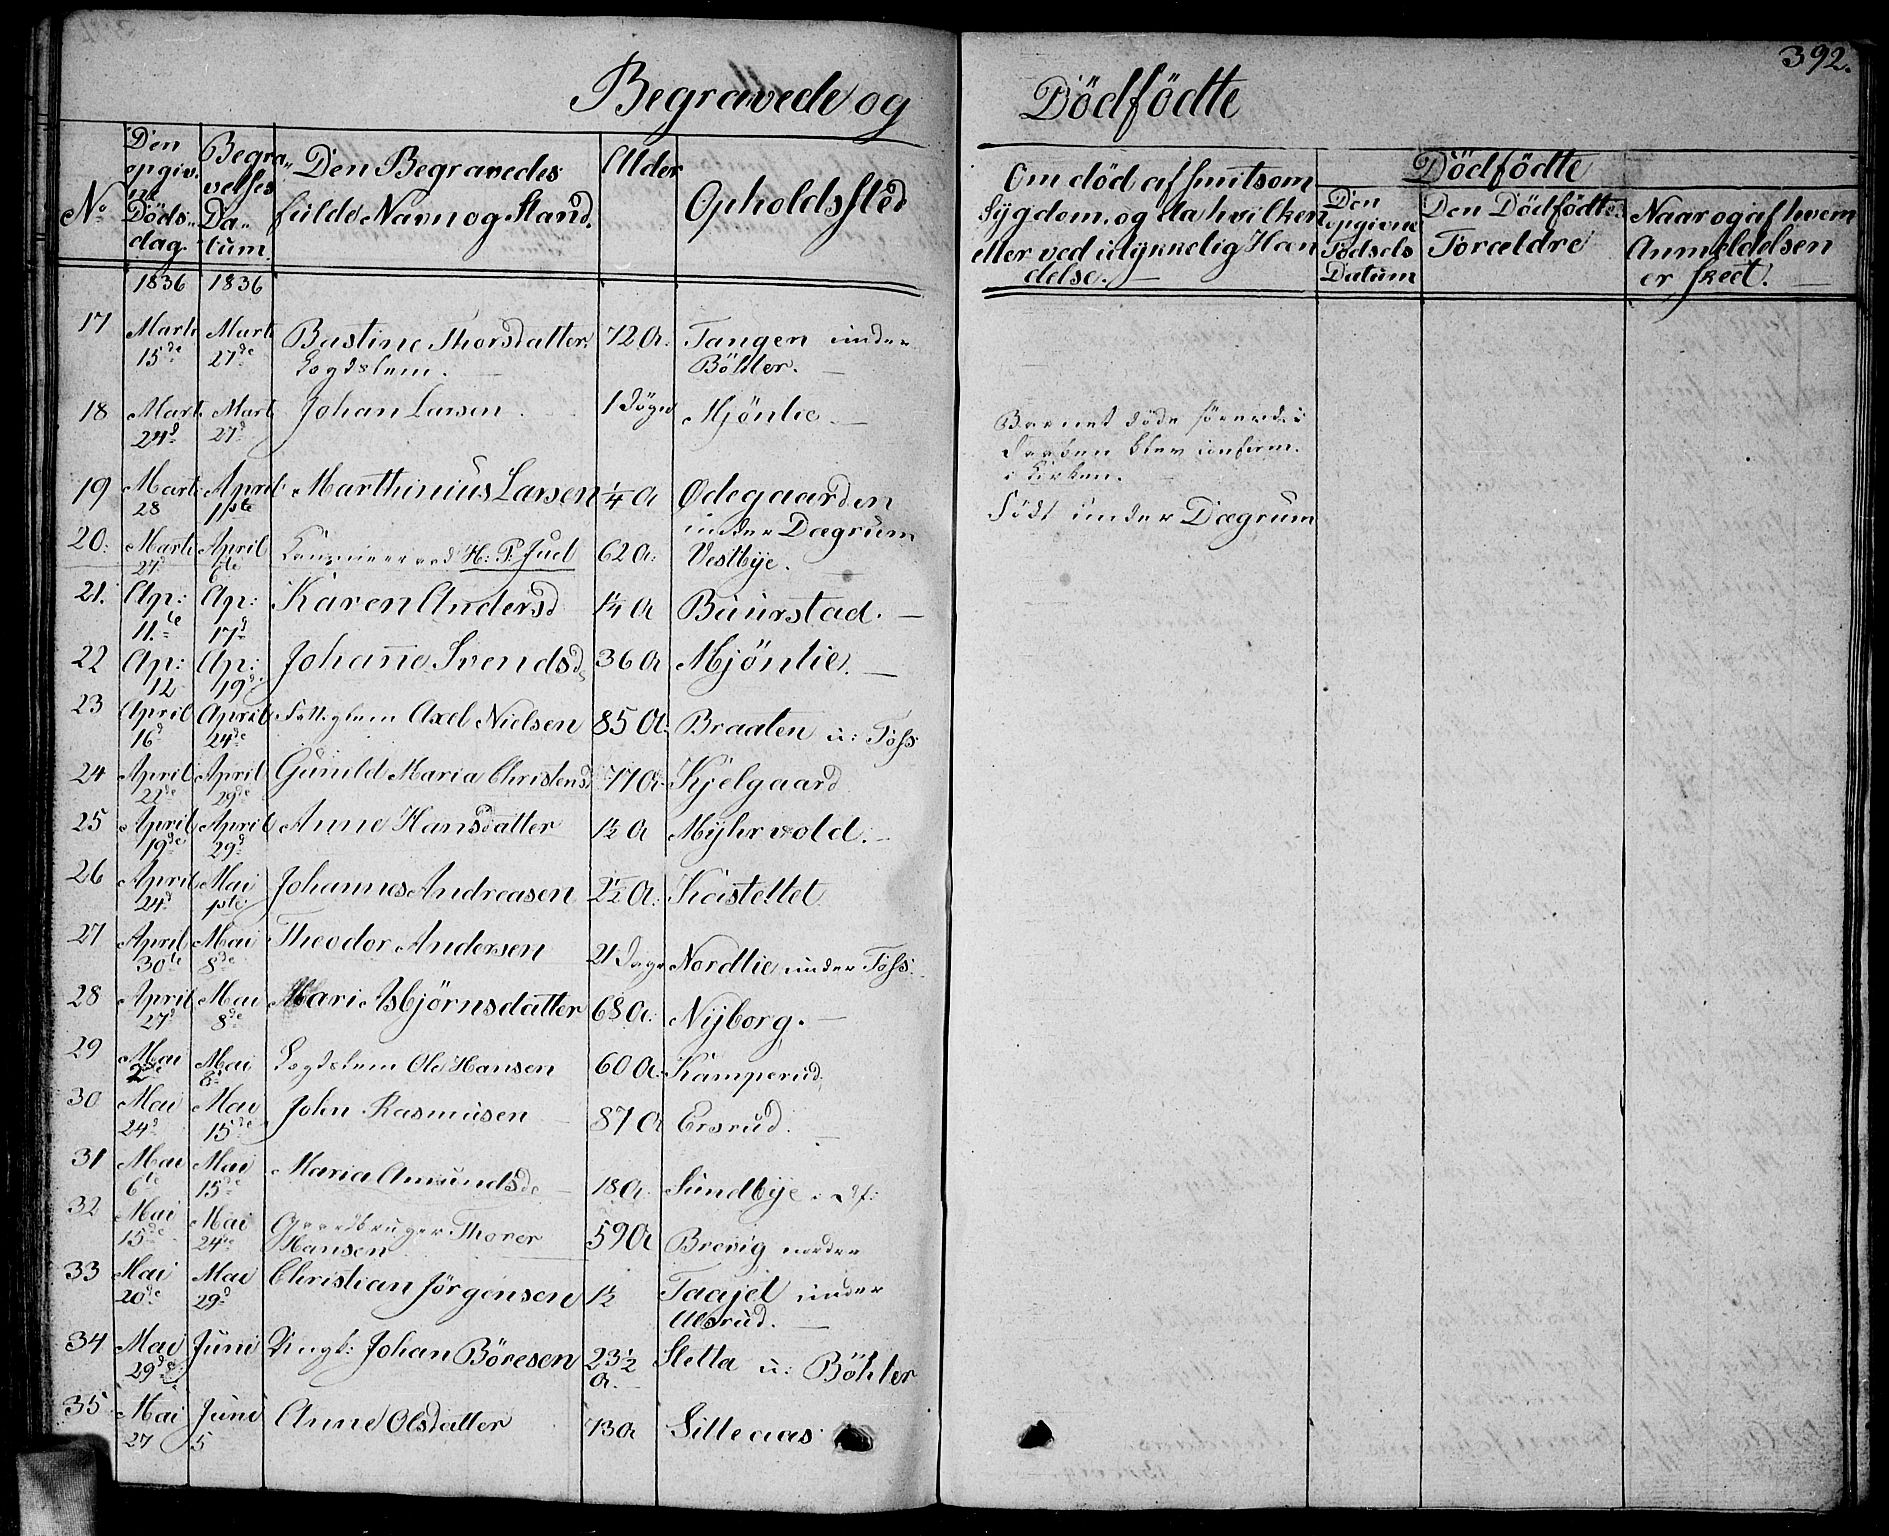 392.
Begravede og Dödfödte
No
Den opgivne Döds-dag.
Begravelses Datum.
Den Begravedes fulde Navn og Stand.
Alder
Opholdssted
Om död af smitsom Sÿgdom, og da hvilken eller ved ulÿkkelig Handelse.
Dödfödte
Den opgivne Födsels Datum
Den Dödfödtes Forældre
Naar og af hvem Anmeldelsen er skeet.
1836 1836
17 Marti 15de Marti 27de Bastine Thorsdatter Logdslem. 72 A. Tangen under Böhler.
18 Mart. 24d Mart 27d Johan Larsen 1 Dögn Mjönlie
Barnet döde förend
Daaben blev confirm.
i Kirken.
19 Mart: 28 April 1ste Marthinius Larsen 1/4 A Ödegaarden under Dægrum
Födt under Dægrum
20. Marti 27d April 6te H: P: Juel 62 A: Vestbÿe.
21. Ap: 11te Ap: 17d Karen Andersd 1/4 A Baurstad.
22 Ap: 12 Ap: 19d Johanne Svendsd 36 A Mjönlie.
23 April 16d April 24de Fattiglem Axel Nielsen 85 A. Braaten u: Foss
24 April 22de April 29de Gunild Maria Christensd 77 A. Kjelgaard
25 April 19de April 29d Anne Hansdatter 1/2 A Mÿhrvold.
26 April 24d Mai 1ste Johannes Andreasen 2 1/2 A. Kastellet
27 April 30te Mai 8de Theodor Andersen 21 Dage Nordlie under Foss.
28 April 27d Mai 8de Mari Asbjörnsdatter 68 A: Nÿborg.
29 Mai 2de Mai 8d Logdslem Ole Hansen 60 A. Kamperud.
30 Mai 24d Mai 15de John Rasmusen 87 A Ersrud.
31 Mai 6te Mai 15de Maria Amundsd 18 A. Sundbÿe
32 Mai 15de Mai 24de Gaardbruger Thorer Hansen 59 A Brevig nordre
33 Mai 20de Mai 29d Christian Jörgensen 1/2 Taajet under Ulsrud.
34 Mai 29de Juni Ungk: Johan Böresen 23 1/2 A. Sletta u: Böhler
35 Mai 27 Juni 5 Anne Olsdatter 73 A Silleaas